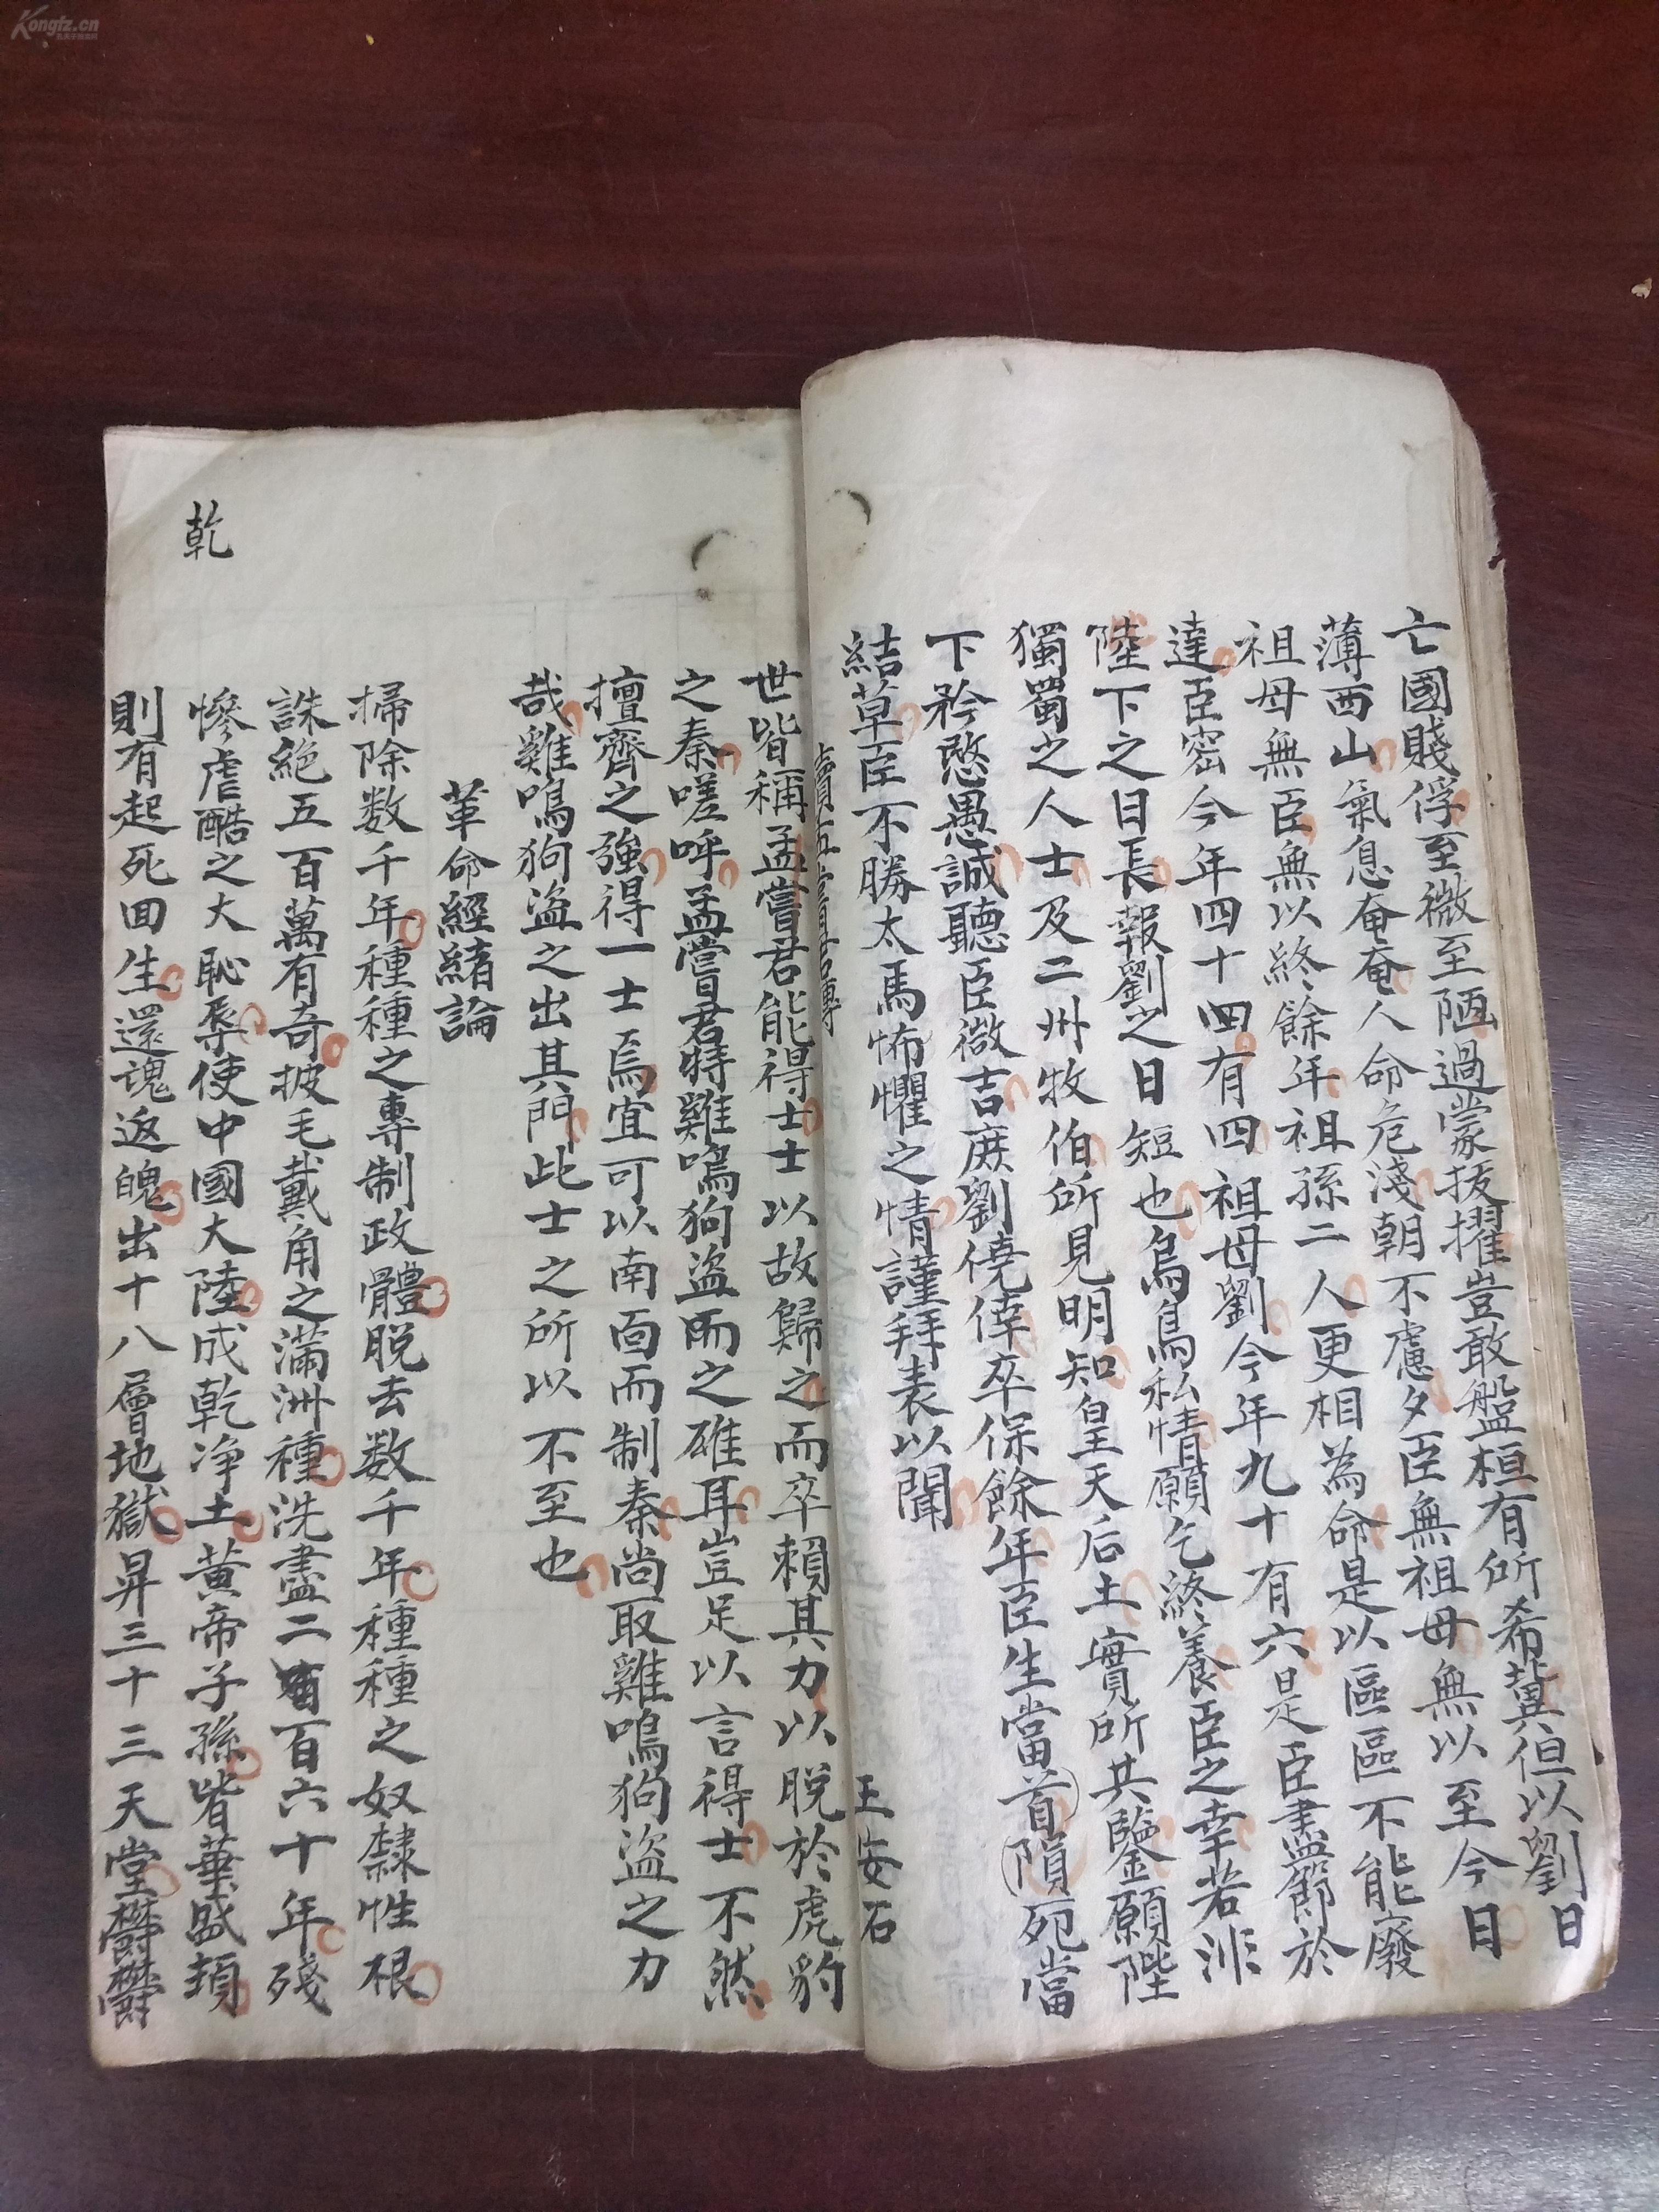 亡國賤俘至微至陋過蒙拔擢豈敢盤桓有所希冀但以劉日
薄西山氣息奄奄人命危淺朝不慮夕臣無祖母無以至今日
祖母無臣無以終餘年祖孫二人更相為命是以區區不能廢
達臣密今年四十四有四祖母劉今年九十有六是臣盡節於
陸下之日長報劉之日短也烏鳥私情願乞終養臣之幸若非
獨蜀之人士及二州牧伯所見明知皇天后土實所共鑒願陛
下矜愍愚誠聽臣微吉庶劉僥倖卒保餘年臣生當首隕死當
結草臣不勝太馬怖懼之情謹拜表以聞
讀孟嘗君傳 王安石
世皆稱孟嘗君能得士士以故歸之而卒賴其力以脱於虎豹
之秦嗟呼孟嘗君特雞鳴狗盜而之雄耳豈足以言得士不然
擅齊之強得一士焉宜可以南面而制秦尚取雞鳴狗盜之力
哉雞鳴狗盜之出其門此士之所以不至也
革命經緒論
掃除数千年種種之專制政體脱去数千年種種之奴隸性根
誅絕五百萬有奇披毛戴角之滿洲種洗盡二百六十年殘
慘虐酷之大恥辱使中國大陸成乾净土黄帝子孫皆華盛頓
則有起死回生還魂返魄出十八層地獄昇三十三天堂欝欝
乾
Kongfz.cn